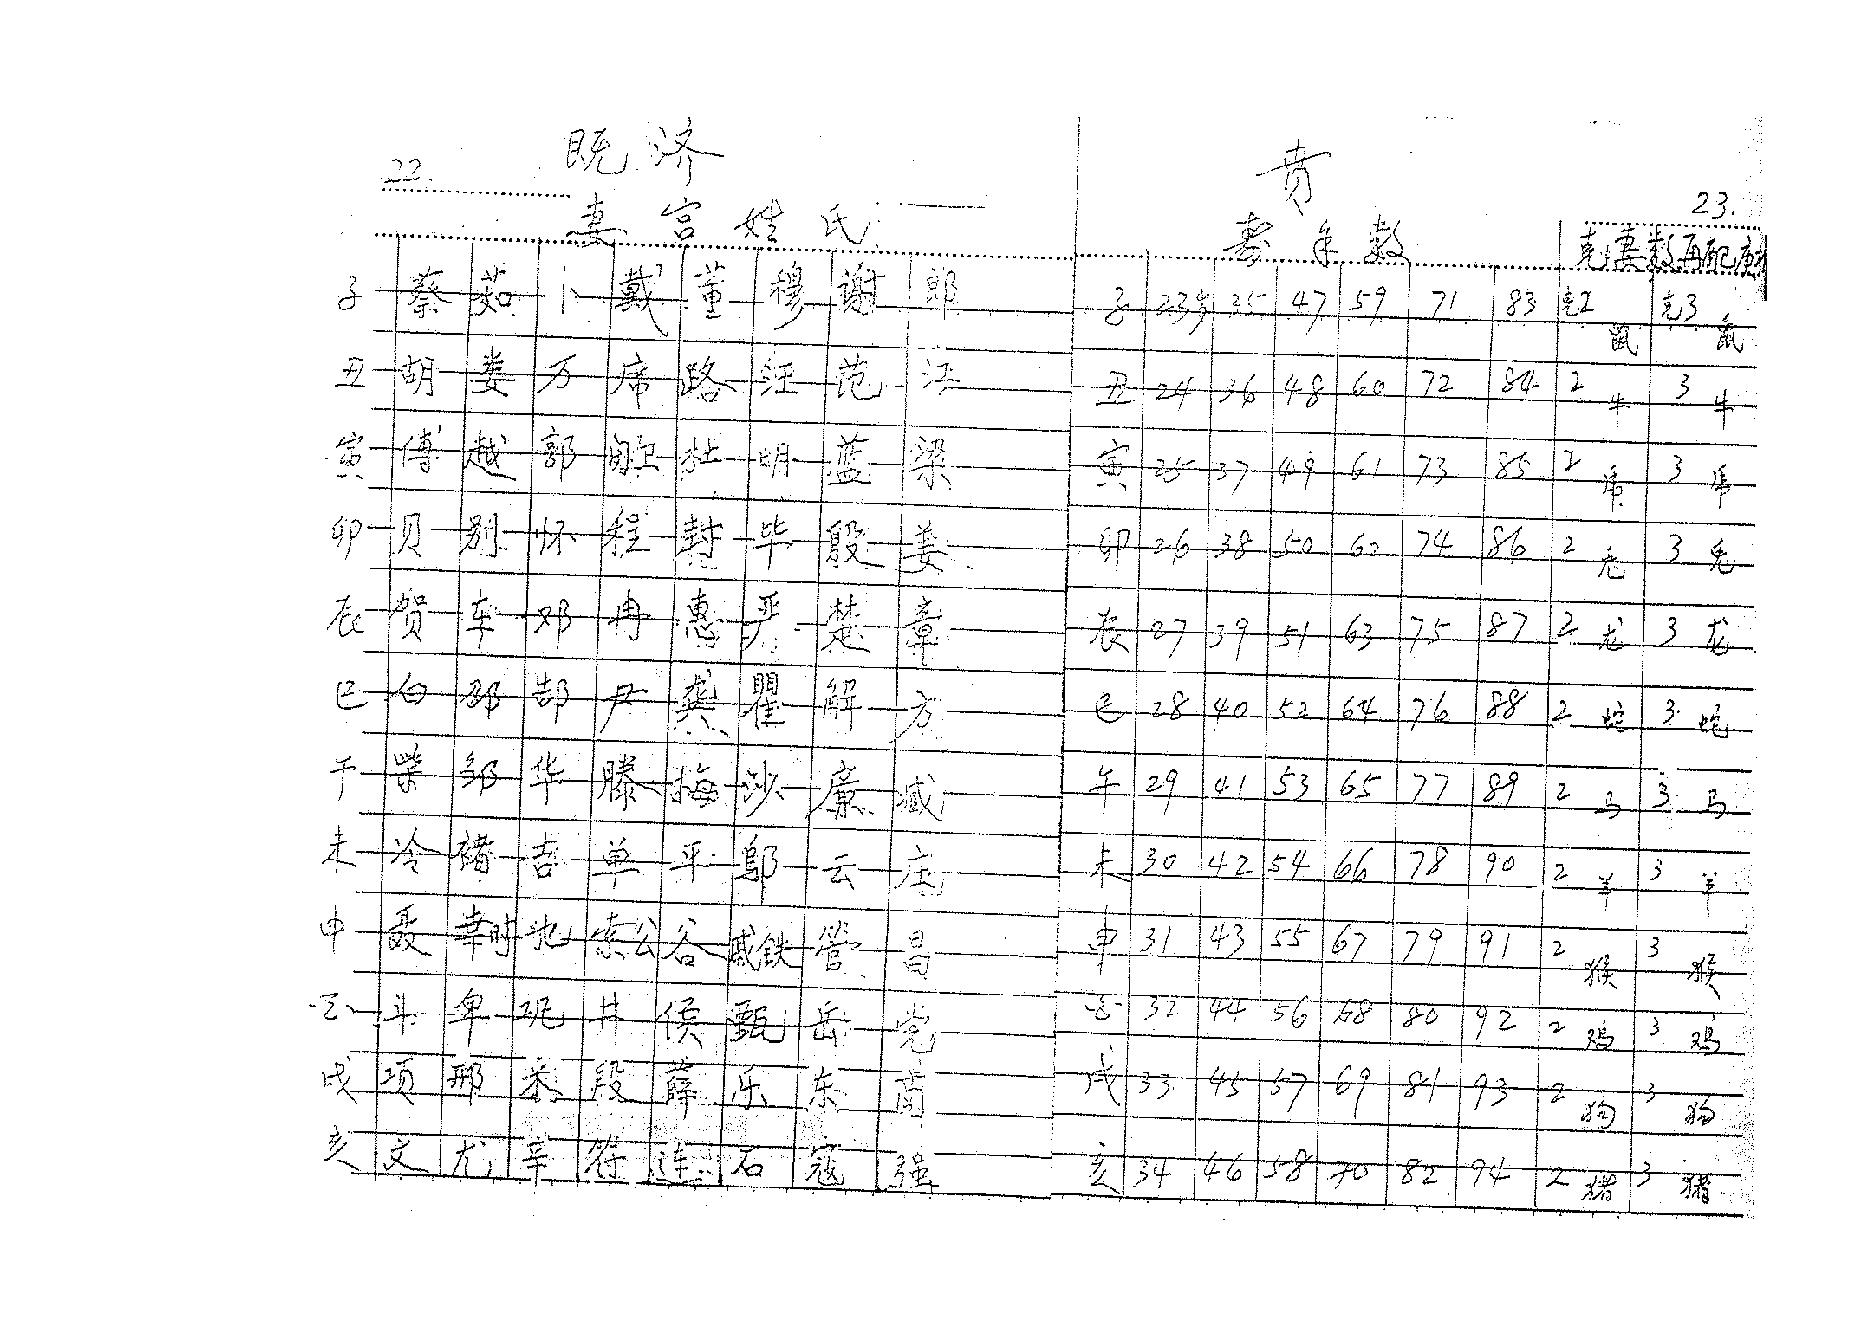 22.
既济
妻宫姓氏
子 蔡 茹 卜 戴 董 穆 谢 郎
丑 胡 娄 万 席 路 汪 范 江
寅 傅 越 郭 杜 明 蓝 梁
卯 贝 别 怀 程 封 毕 殷 姜
辰 贺 车 邓 冉 惠 严 楚 章
巳 白 邵 郜 尹 龚 瞿 解 方
午 柴 邹 华 滕 梅 沙 廉 臧
未 冷 褚 吉 单 平 邬 云 庄
申 聂 幸时 池 索公 谷 戚铁 管 昌
斗 卑 巩 井 侯 甄 岳 党
戌 项 邢 苏 段 薛 乐 东 商
亥 文 尤 辛 符 连 石 寇 强
贲
23.
寿年数
克妻数再配
子 23岁 35 47 59 71 83 克2 鼠 克3 鼠
丑 24 36 48 60 72 84 2 牛 3 牛
寅 25 37 49 61 73 85 2 虎 3 虎
卯 26 38 50 62 74 86 2 兔 3 兔
辰 27 39 51 63 75 87 2 龙 3 龙
巳 28 40 52 64 76 88 2 蛇 3 蛇
午 29 41 53 65 77 89 2 马 3 马
未 30 42 54 66 78 90 2 羊 3 羊
申 31 43 55 67 79 91 2 猴 3 猴
32 44 56 68 80 92 2 鸡 3 鸡
戌 33 45 57 69 81 93 2 狗 3 狗
亥 34 46 58 70 82 94 2 猪 3 猪